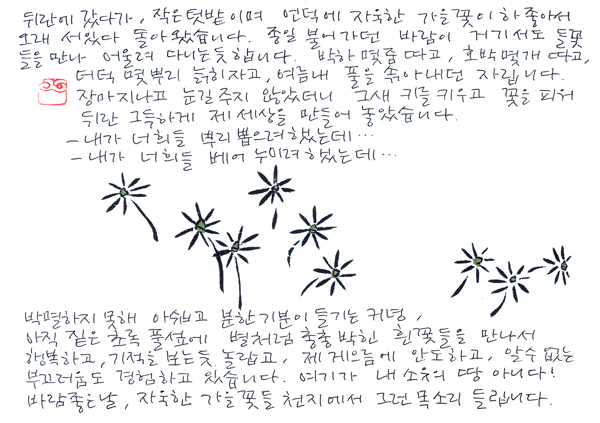 뒤란에 갔다가, 작은 텃밭이며 언덕에 자욱한 가을꽃이 하 좋아서
오래 서있다 돌아왔습니다. 종일 불어가던 바람이 거기서도 들꽃
들을 만나 어울려 다니는듯 합니다. 박하 몇줌 따고, 호박 몇개 따고,
더덕 몇뿌리 늙히자고, 여름내 풀을 솎아내던 자립니다.
장마 지나고 눈길 주지 않았더니 그새 키를 키우고 꽃을 피워
뒤란 그득하게 제 세상을 만들어 놓았습니다.
- 내가 너희들 뿌리 뽑으려 했는데…
- 내가 너희들 베어 누이려 했는데…
박멸하지 못해 아쉽고 분한 기분이 들기는 커녕,
아직 짙은 초록 풀섶에 별처럼 총총 박힌 흰꽃들을 만나서
행복하고, 기적을 보는듯 놀랍고, 제 게으름에 안도하고, 알 수 없는
부끄러움도 경험하고 왔습니다. 여기가 내 소유의 땅 아니다!
바람 좋은 날, 자욱한 가을꽃들 천지에서 그런 목소리 들립니다.